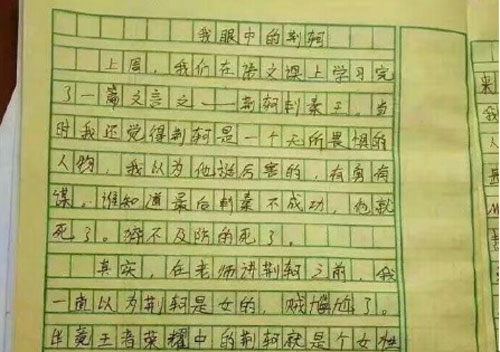 我眼中的荆轲
上周，我们在语文课上学习完
了一篇文言文——荆轲刺秦王。当
时我还觉得荆轲是一个无所畏惧的
人物，我以为他挺厉害的，有勇有
谋。谁知道最后刺秦不成功，他就
死了。猝不及防的死了。
其实，在老师讲荆轲之前，我
一直以为荆轲是女的，贼尴尬了。
毕竟王者荣耀中的荆轲就是个女性
来
我